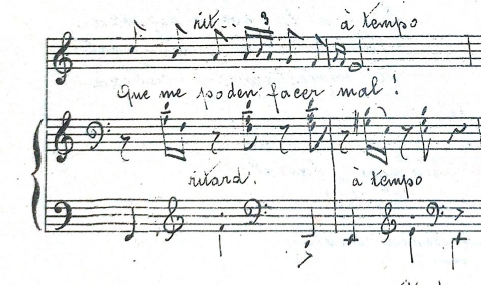 rit. 3 à tempo
Que me poden facer mal!
ritard. à tempo